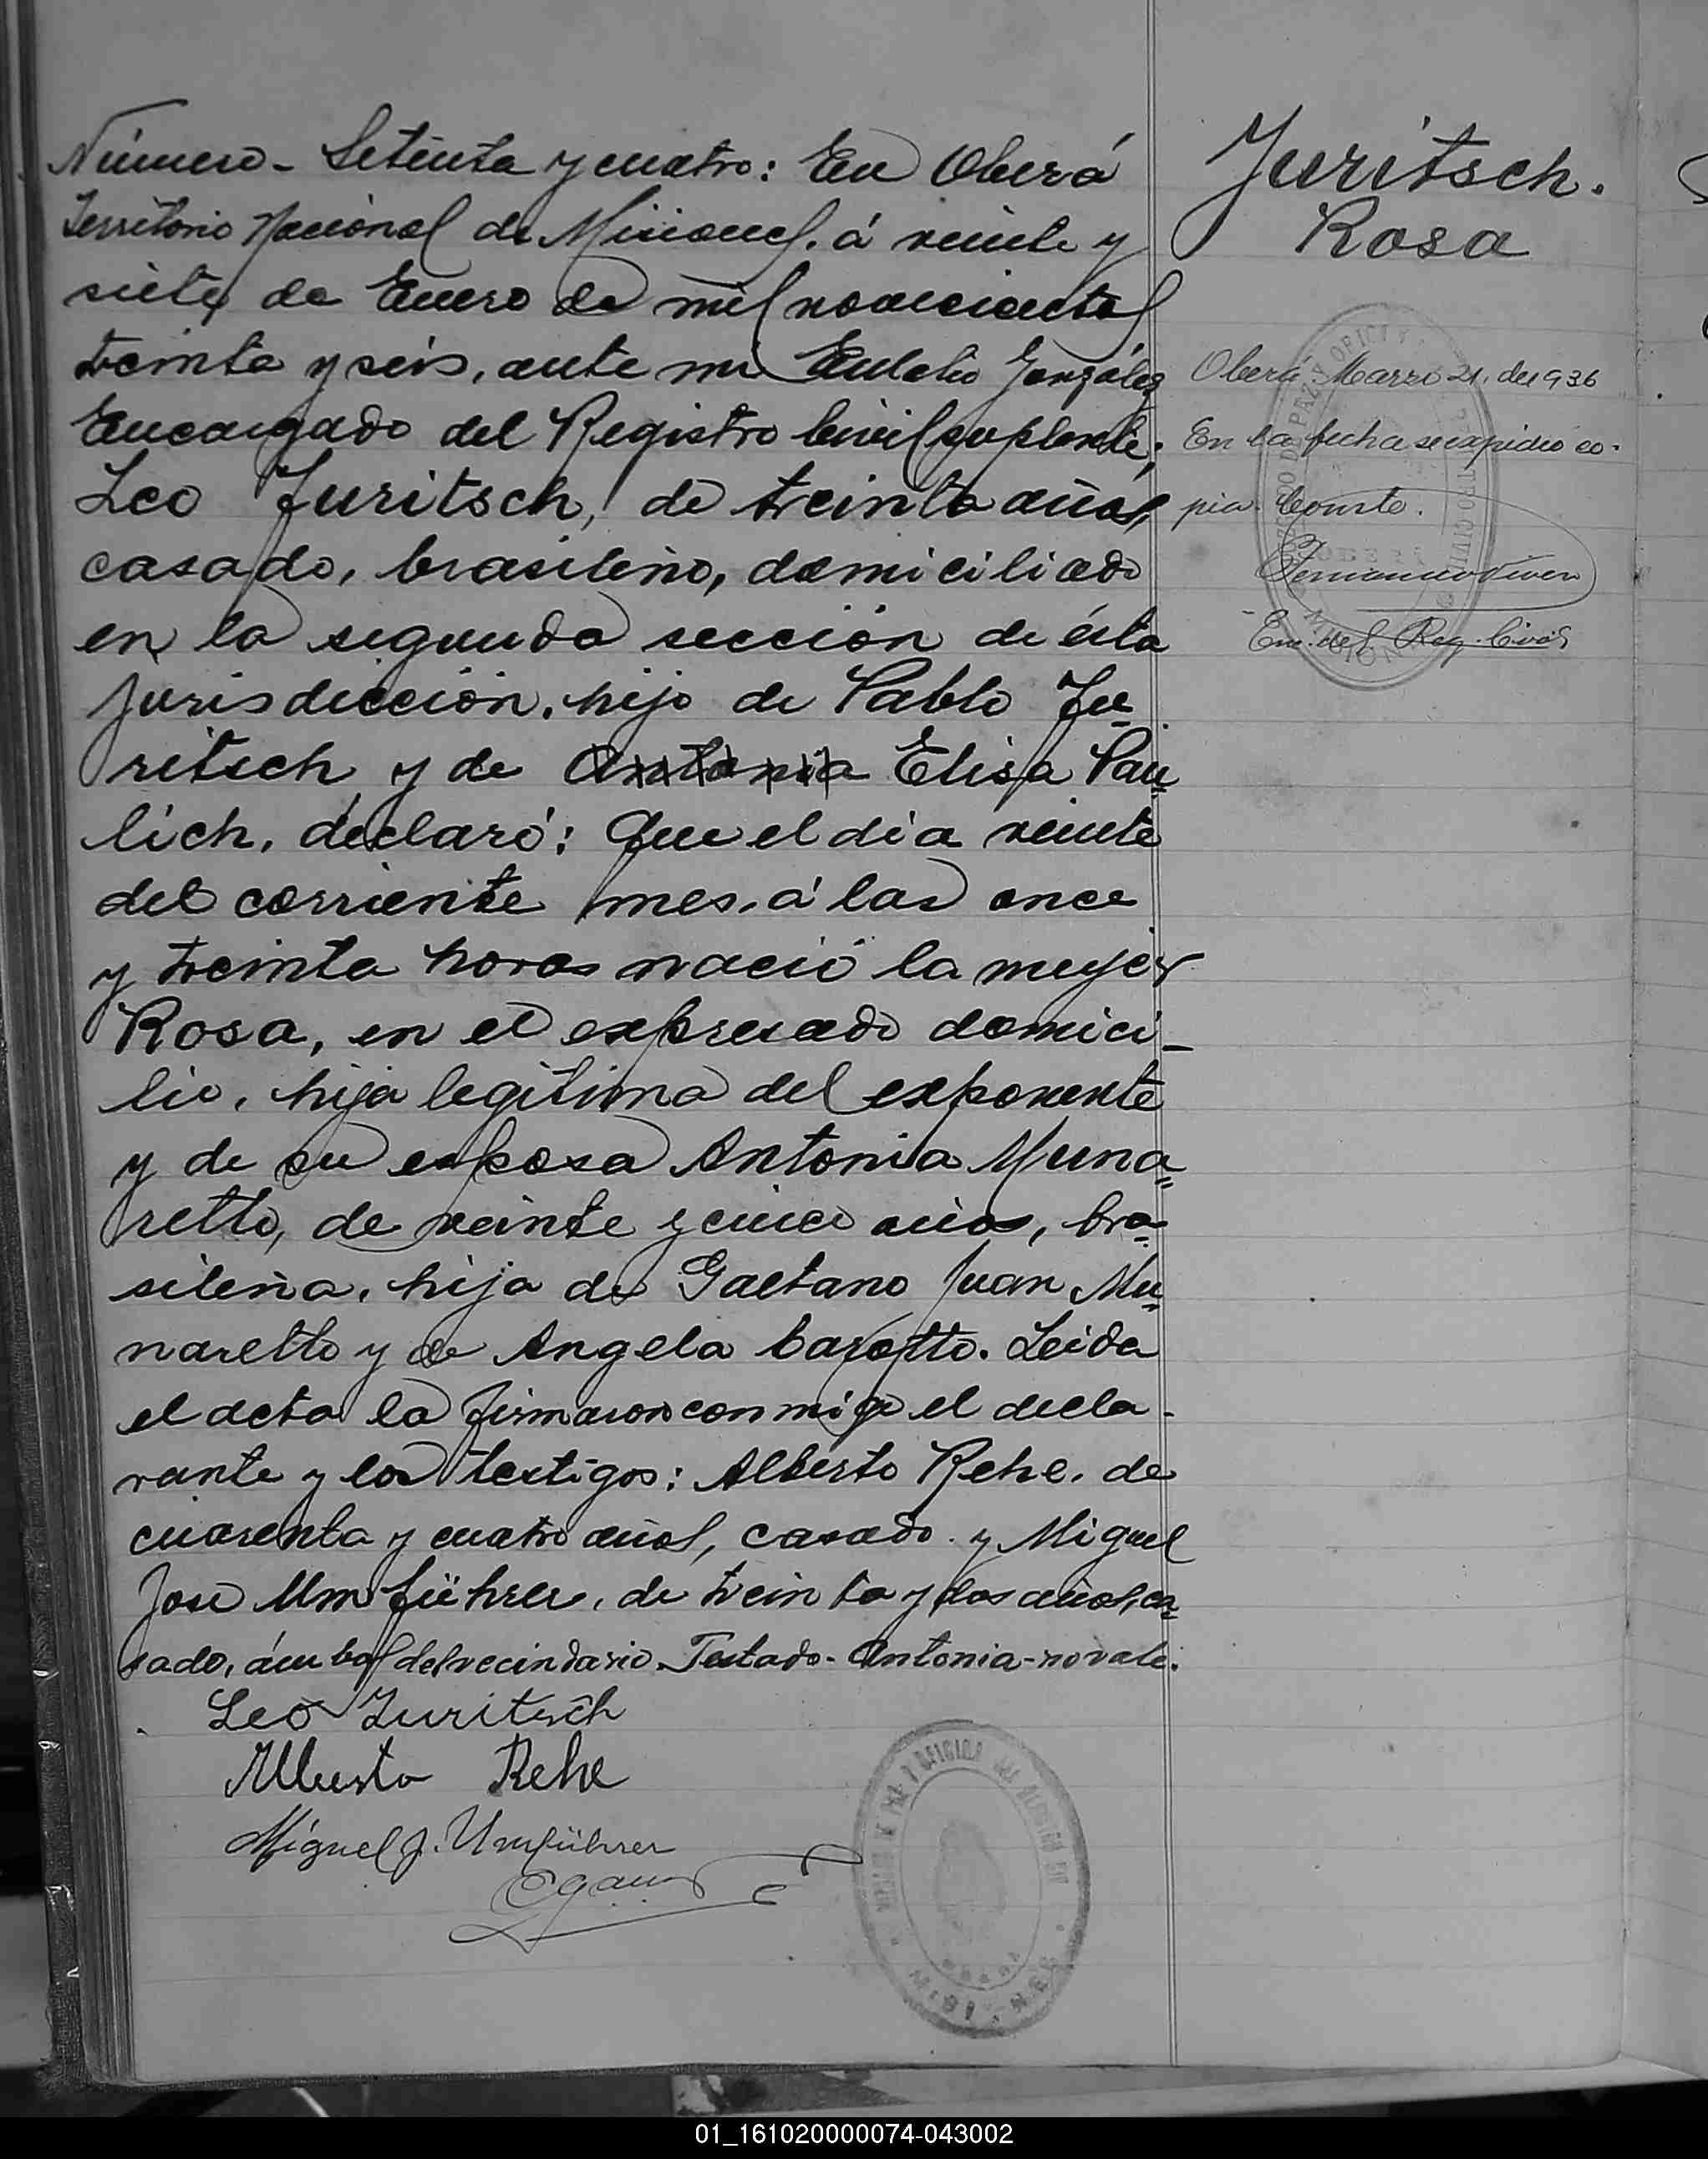 Número - Setenta y cuatro: En Oberá
Territorio Nacional de Misiones, á veinte y
siete de Enero de mil novecientos
treinta y seis, ante mi Eulalio González
Encargado del Registro Civil suplente;
Leo Juritsch, de treinta años,
casado, brasileño, domiciliado
en la segunda sección de ésta
jurisdicción, hijo de Pablo Ju=
ritsch y de Antonia Elisa Pau=
lich, declaró: Que el dia veinte
del corriente mes, á las once
y treinta horas nació la mujer
Rosa, en el expresado domici-
lio, hija legítima del exponente
y de su esposa Antonia Muna=
retto, de veinte y cinco años, bra=
sileña, hija de Gaetano Juan Mu=
naretto y de Angela Carotto. Leida
el acta la firmaron conmigo el decla-
rante y los testigos: Alberto Rehe, de
cuarenta y cuatro años, casado y Miguel
José Umführer, de treinta y dos años, ca=
sado, ámbos del vecindario. Testado - Antonia - no vale.
Leo Juritsch
Alberto Rehe
Miguel J. Umführer
Juritsch.
Rosa
Oberá Marzo 21, de 1936
En la fecha se expidió co-
pia. Conste.
Enc. del Reg. Civil
01_161020000074-043002